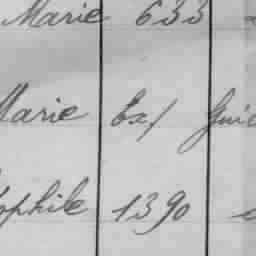 Marie 633
Marie Ex/
ophile 1390